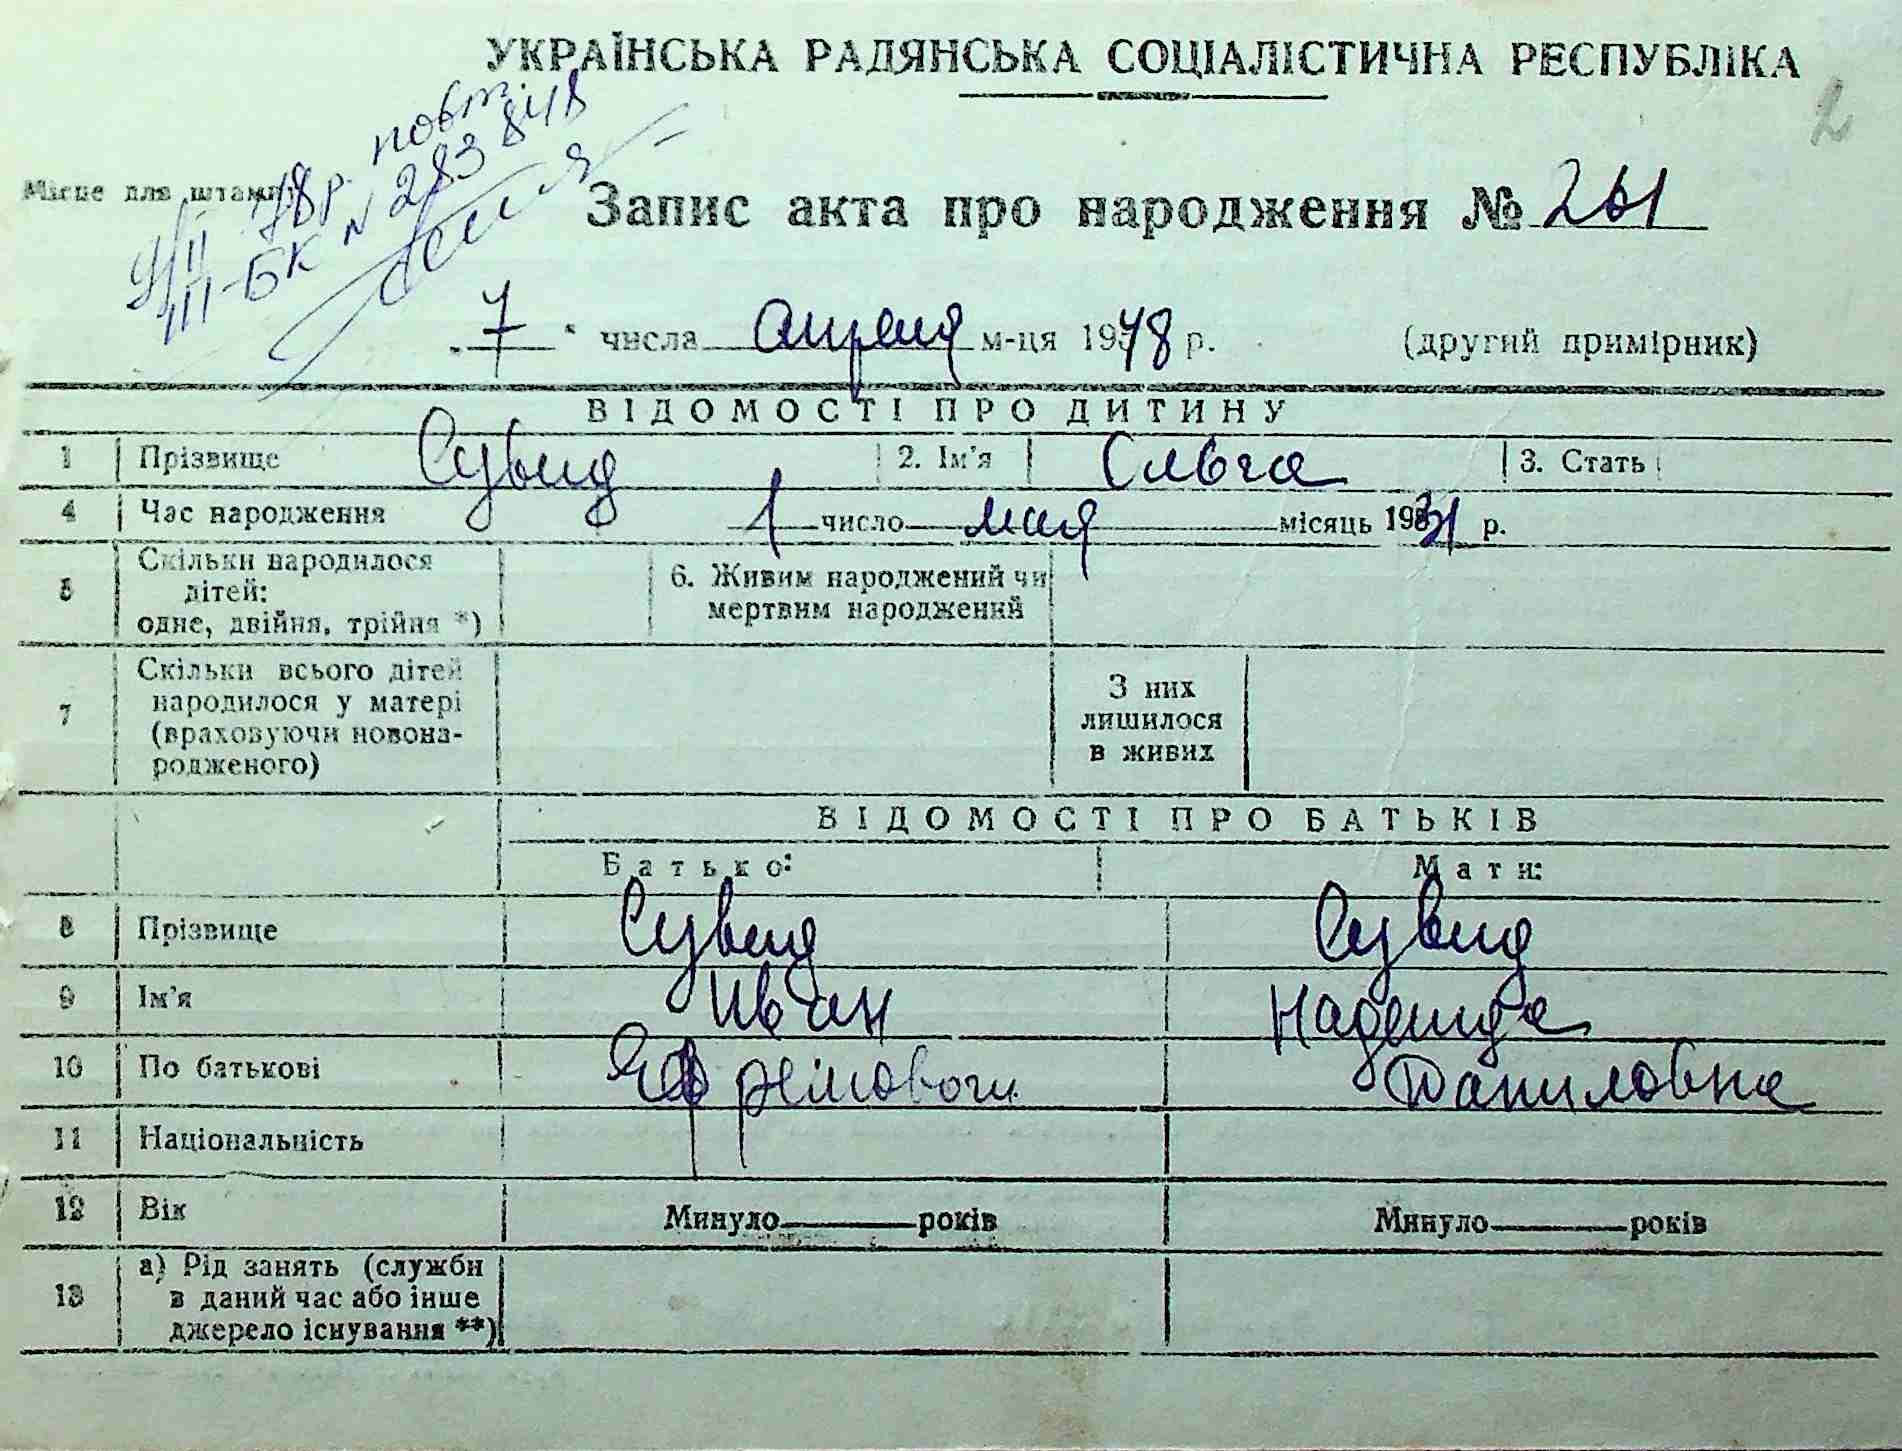 УКРАЇНСЬКА РАДЯНСЬКА СОЦІАЛІСТИЧНА РЕСПУБЛІКА
2
Місце для штампу
повт.
9/II 78 р.
III-БК № 283848
Запис акта про народження № 261
„ 7 “ числа апреля м-ця 1948 р. (другий примірник)
ВІДОМОСТІ ПРО ДИТИНУ
1 Прізвище Сувид 2. Ім'я Ольга 3. Стать
4 Час народження 1 число мая місяць 1931 р.
5 Скільки народилося дітей: одне, двійня, трійня *) 6. Живим народжений чи мертвим народжений
7 Скільки всього дітей народилося у матері (враховуючи новонародженого) З них лишилося в живих
ВІДОМОСТІ ПРО БАТЬКІВ
Батько: Мати:
8 Прізвище Сувид Сувид
9 Ім'я Иван Надежда
10 По батькові Ефремович Даниловна
11 Національність
12 Вік Минуло років Минуло років
13 а) Рід занять (служби в даний час або інше джерело існування **)